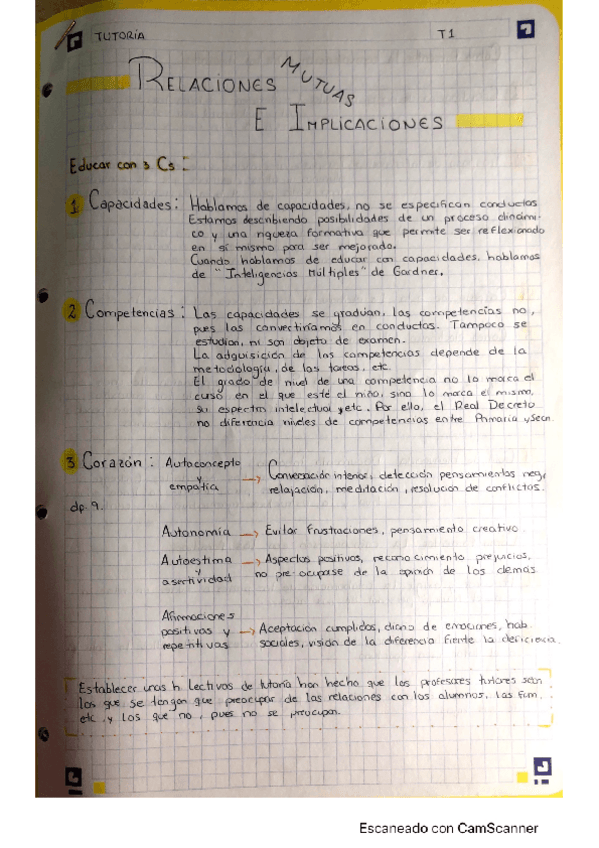 TUTORÍA
T1
RELACIONES MUTUAS
E IMPLICACIONES
Educar con 3 Cs:
1 Capacidades: Hablamos de capacidades, no se especifican conductas
Estamos describiendo posibilidades de un proceso dinámi-
co y una riqueza formativa que permite ser reflexionado
en sí mismo para ser mejorado.
Cuando hablamos de educar con capacidades, hablamos
de "Inteligencias Múltiples" de Gardner.
2 Competencias: Las capacidades se gradúan, las competencias no,
pues las convertiríamos en conductas. Tampoco se
estudian, ni son objeto de examen.
La adquisición de las competencias depende de la
metodología, de las tareas, etc.
El grado de nivel de una competencia no lo marca el
curso en el que esté el niño, sino lo marca el mismo,
su espectro intelectual, etc. Por ello, el Real Decreto
no diferencia niveles de competencias entre Primaria y Secn.
3 Corazón: Autoconcepto
y
empatía
Conversación interior, detección pensamientos neg,
relajación, meditación, resolución de conflictos.
dp. 9.
Autonomía → Evitar frustraciones, pensamiento creativo
Autoestima
y
asertividad
→ Aspectos positivos, reconocimiento prejuicios,
no pre-ocuparse de la opinión de los demás
Afirmaciones
positivas y
repetitivas
→ Aceptación cumplidos, diario de emociones, hab
sociales, visión de la diferencia frente la deficiencia.
Establecer unas h lectivas de tutoría han hecho que los profesores tutores sean
los que se tengan que preocupar de las relaciones con los alumnos, las fam,
etc y los que no, pues no se preocupan.
Escaneado con CamScanner